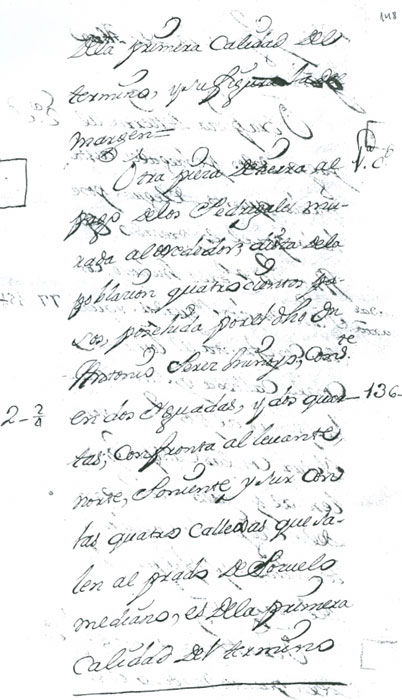 148
dela primera Calidad del
termino, y su figura la del
margen=
Otra pieza de tierra al
pago delos Pedregales mu-
rada al rededor, dista dela
poblacion quatrocientos pa-
sos, posehida por el dho Dn
Antonio Perez Muñoz, Conste
2 - 2/4 en dos Yguadas, y dos quar- 136-
tas, Confronta al levante,
norte, Poniente, y sur con
las quatro Callejas que sa-
len al prado de Pozuelo
mediano, es dela primera
Calidad del termino